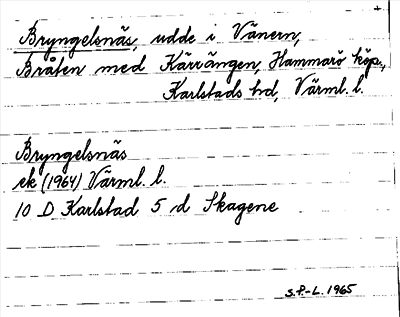 Bryngelsnäs, udde i Vänern,
Bråten med Kärrängen, Hammarö köp.,
Karlstads hd, Värml. l.
Bryngelsnäs
ek (1964) Värml. l.
10 D Karlstad 5 d Skagene
S.P.-L. 1965